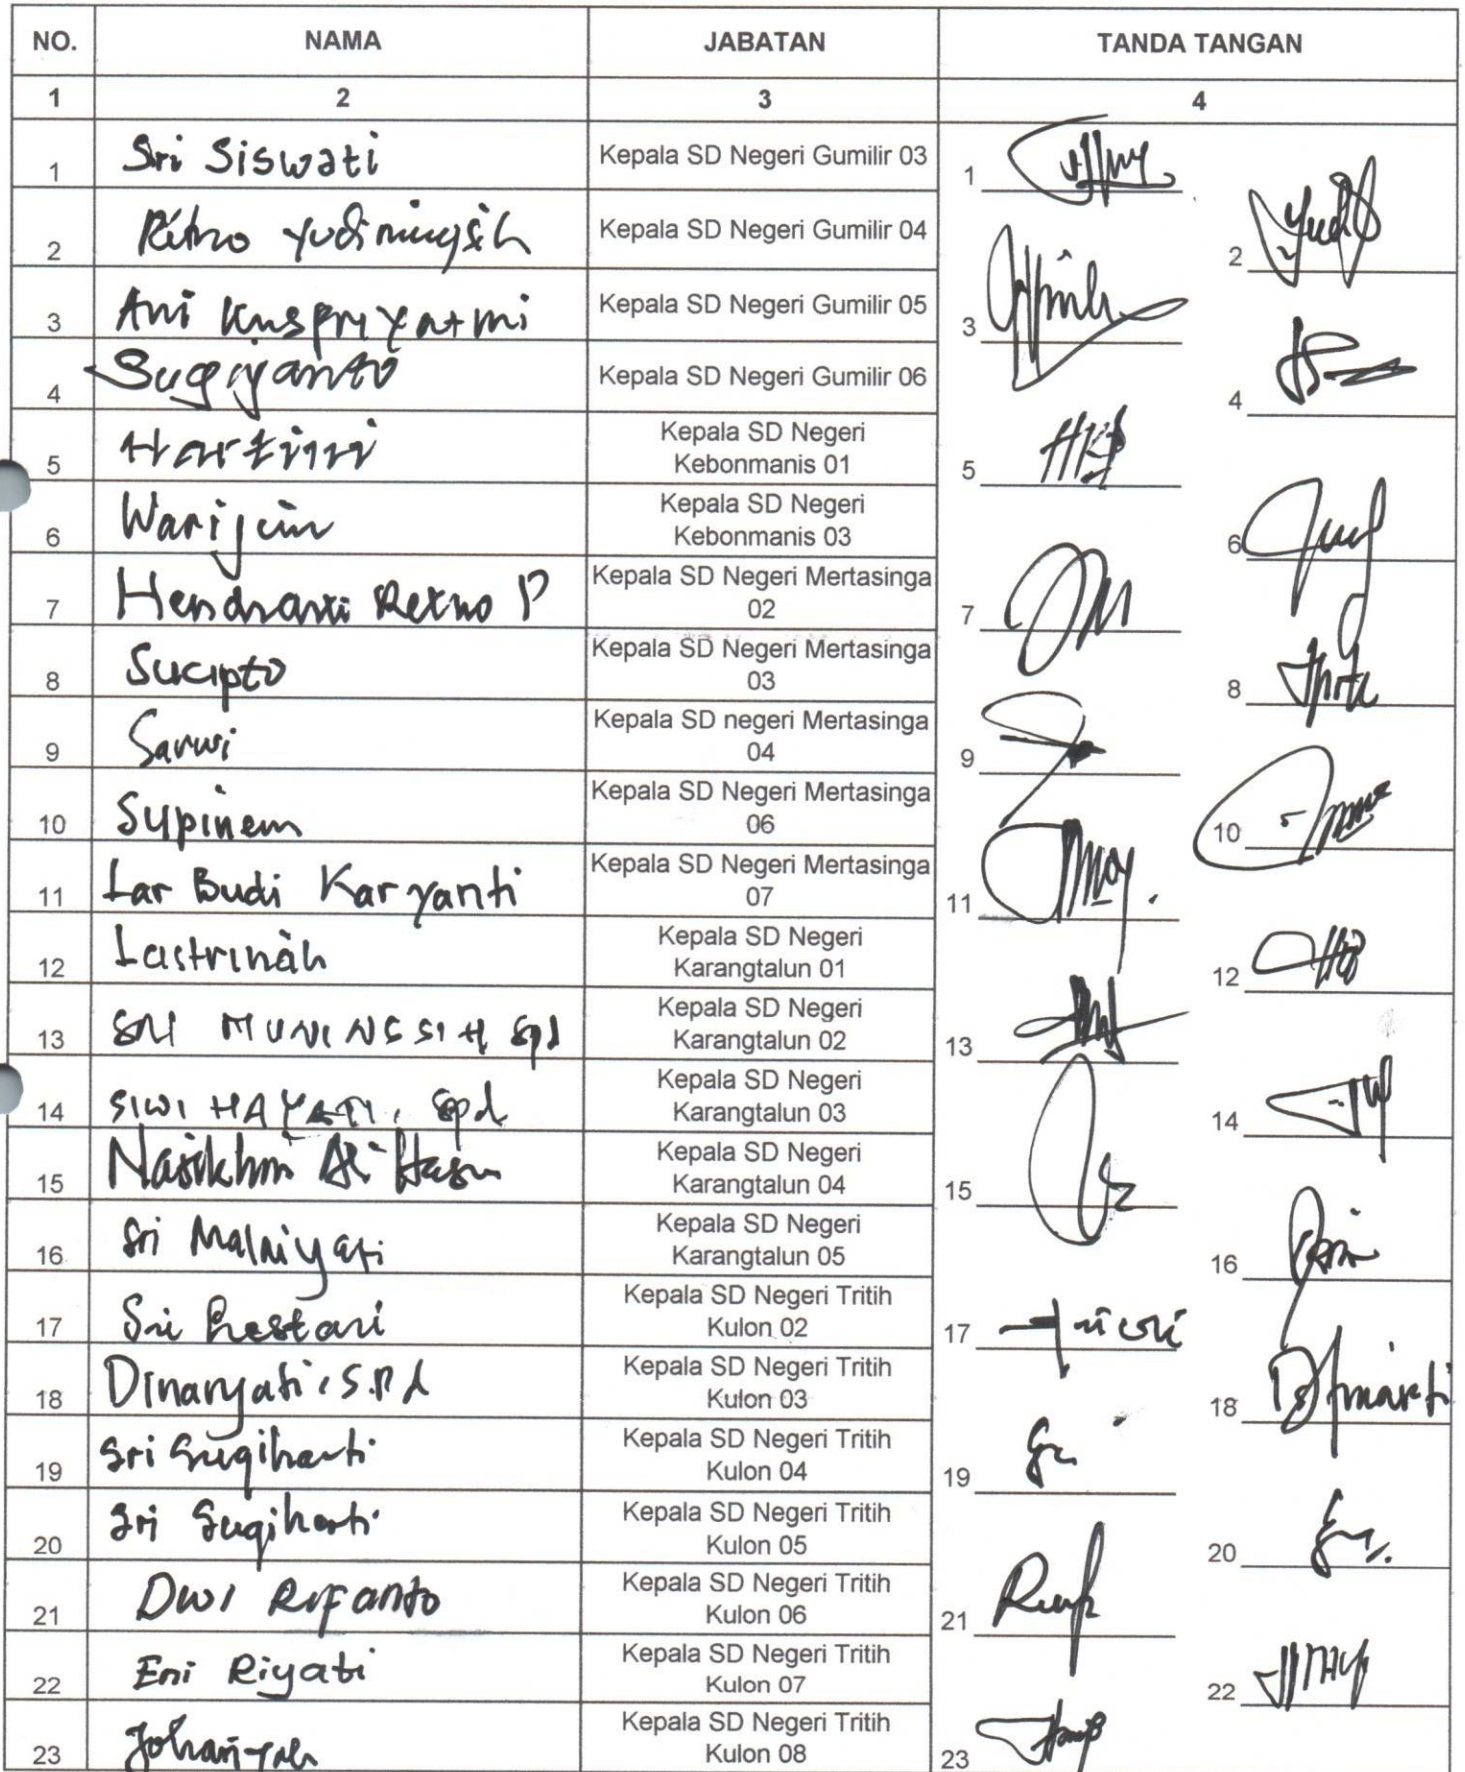 NO. NAMA JABATAN TANDA TANGAN
1 2 3 4
1 Sri Siswati Kepala SD Negeri Gumilir 03 1
2 Retno Yudiningsih Kepala SD Negeri Gumilir 04 2
3 Ani Kuspriyatmi Kepala SD Negeri Gumilir 05 3
4 Sugiyanto Kepala SD Negeri Gumilir 06 4
5 Hartini Kepala SD Negeri
Kebonmanis 01 5
6 Warijan Kepala SD Negeri
Kebonmanis 03 6
7 Hendranti Retno P Kepala SD Negeri Mertasinga
02 7
8 Sucipto Kepala SD Negeri Mertasinga
03 8
9 Sarwi Kepala SD negeri Mertasinga
04 9
10 Supinem Kepala SD Negeri Mertasinga
06 10
11 Lar Budi Karyanti Kepala SD Negeri Mertasinga
07 11
12 Lastrinah Kepala SD Negeri
Karangtalun 01 12
13 SRI MUNINGSIH Spd Kepala SD Negeri
Karangtalun 02 13
14 SIWI HAYATI, Spd Kepala SD Negeri
Karangtalun 03 14
15 Nasikhin Ali Kepala SD Negeri
Karangtalun 04 15
16 Sri Kepala SD Negeri
Karangtalun 05 16
17 Sri Lestari Kepala SD Negeri Tritih
Kulon 02 17
18 Dinaryati, S.Pd Kepala SD Negeri Tritih
Kulon 03 18
19 Sri Sugiharti Kepala SD Negeri Tritih
Kulon 04 19
20 Sri Sugiharti Kepala SD Negeri Tritih
Kulon 05 20
21 Dwi Rifanto Kepala SD Negeri Tritih
Kulon 06 21
22 Eni Riyati Kepala SD Negeri Tritih
Kulon 07 22
23 Kepala SD Negeri Tritih
Kulon 08 23